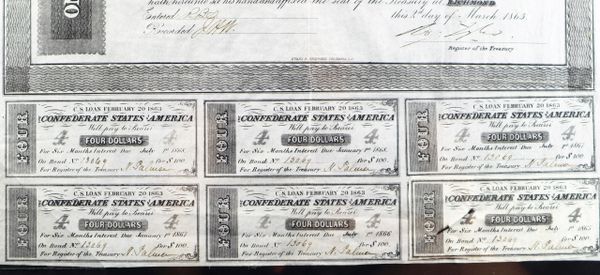 hath hereunto set his hand and affixed the Seal of the Treasury at RICHMOND
Entered this 2d day of March 1863.
Recorded
Register of the Treasury
C.S. LOAN FEBRUARY 20 1863
CONFEDERATE STATES OF AMERICA
Will pay to Bearer
FOUR 4 FOUR DOLLARS 4
For Six Months Interest Due 1st 1868
On Bond No 13069 for $100.
For Register of the Treasury
C.S. LOAN FEBRUARY 20 1863
CONFEDERATE STATES OF AMERICA
Will pay to Bearer
FOUR 4 FOUR DOLLARS 4
For Six Months Interest Due July 1st
On Bond No 13069 for $100.
For Register of the Treasury
C.S. LOAN FEBRUARY 20 1863
CONFEDERATE STATES OF AMERICA
Will pay to Bearer
FOUR 4 FOUR DOLLARS 4
For Six Months Interest Due July 1st
On Bond No 13069 for $100.
For Register of the Treasury
C.S. LOAN FEBRUARY 20 1863
CONFEDERATE STATES OF AMERICA
Will pay to Bearer
FOUR 4 FOUR DOLLARS 4
For Six Months Interest Due January 1st 1867
On Bond No 13069 for $100.
For Register of the Treasury
C.S. LOAN FEBRUARY 20 1863
CONFEDERATE STATES OF AMERICA
Will pay to Bearer
FOUR 4 FOUR DOLLARS 4
For Six Months Interest Due July 1st 1866
On Bond No 13069 for $100.
For Register of the Treasury
C.S. LOAN FEBRUARY 20 1863
CONFEDERATE STATES OF AMERICA
Will pay to Bearer
FOUR 4 FOUR DOLLARS 4
For Six Months Interest Due July 1st
On Bond No 13069 for $100.
For Register of the Treasury